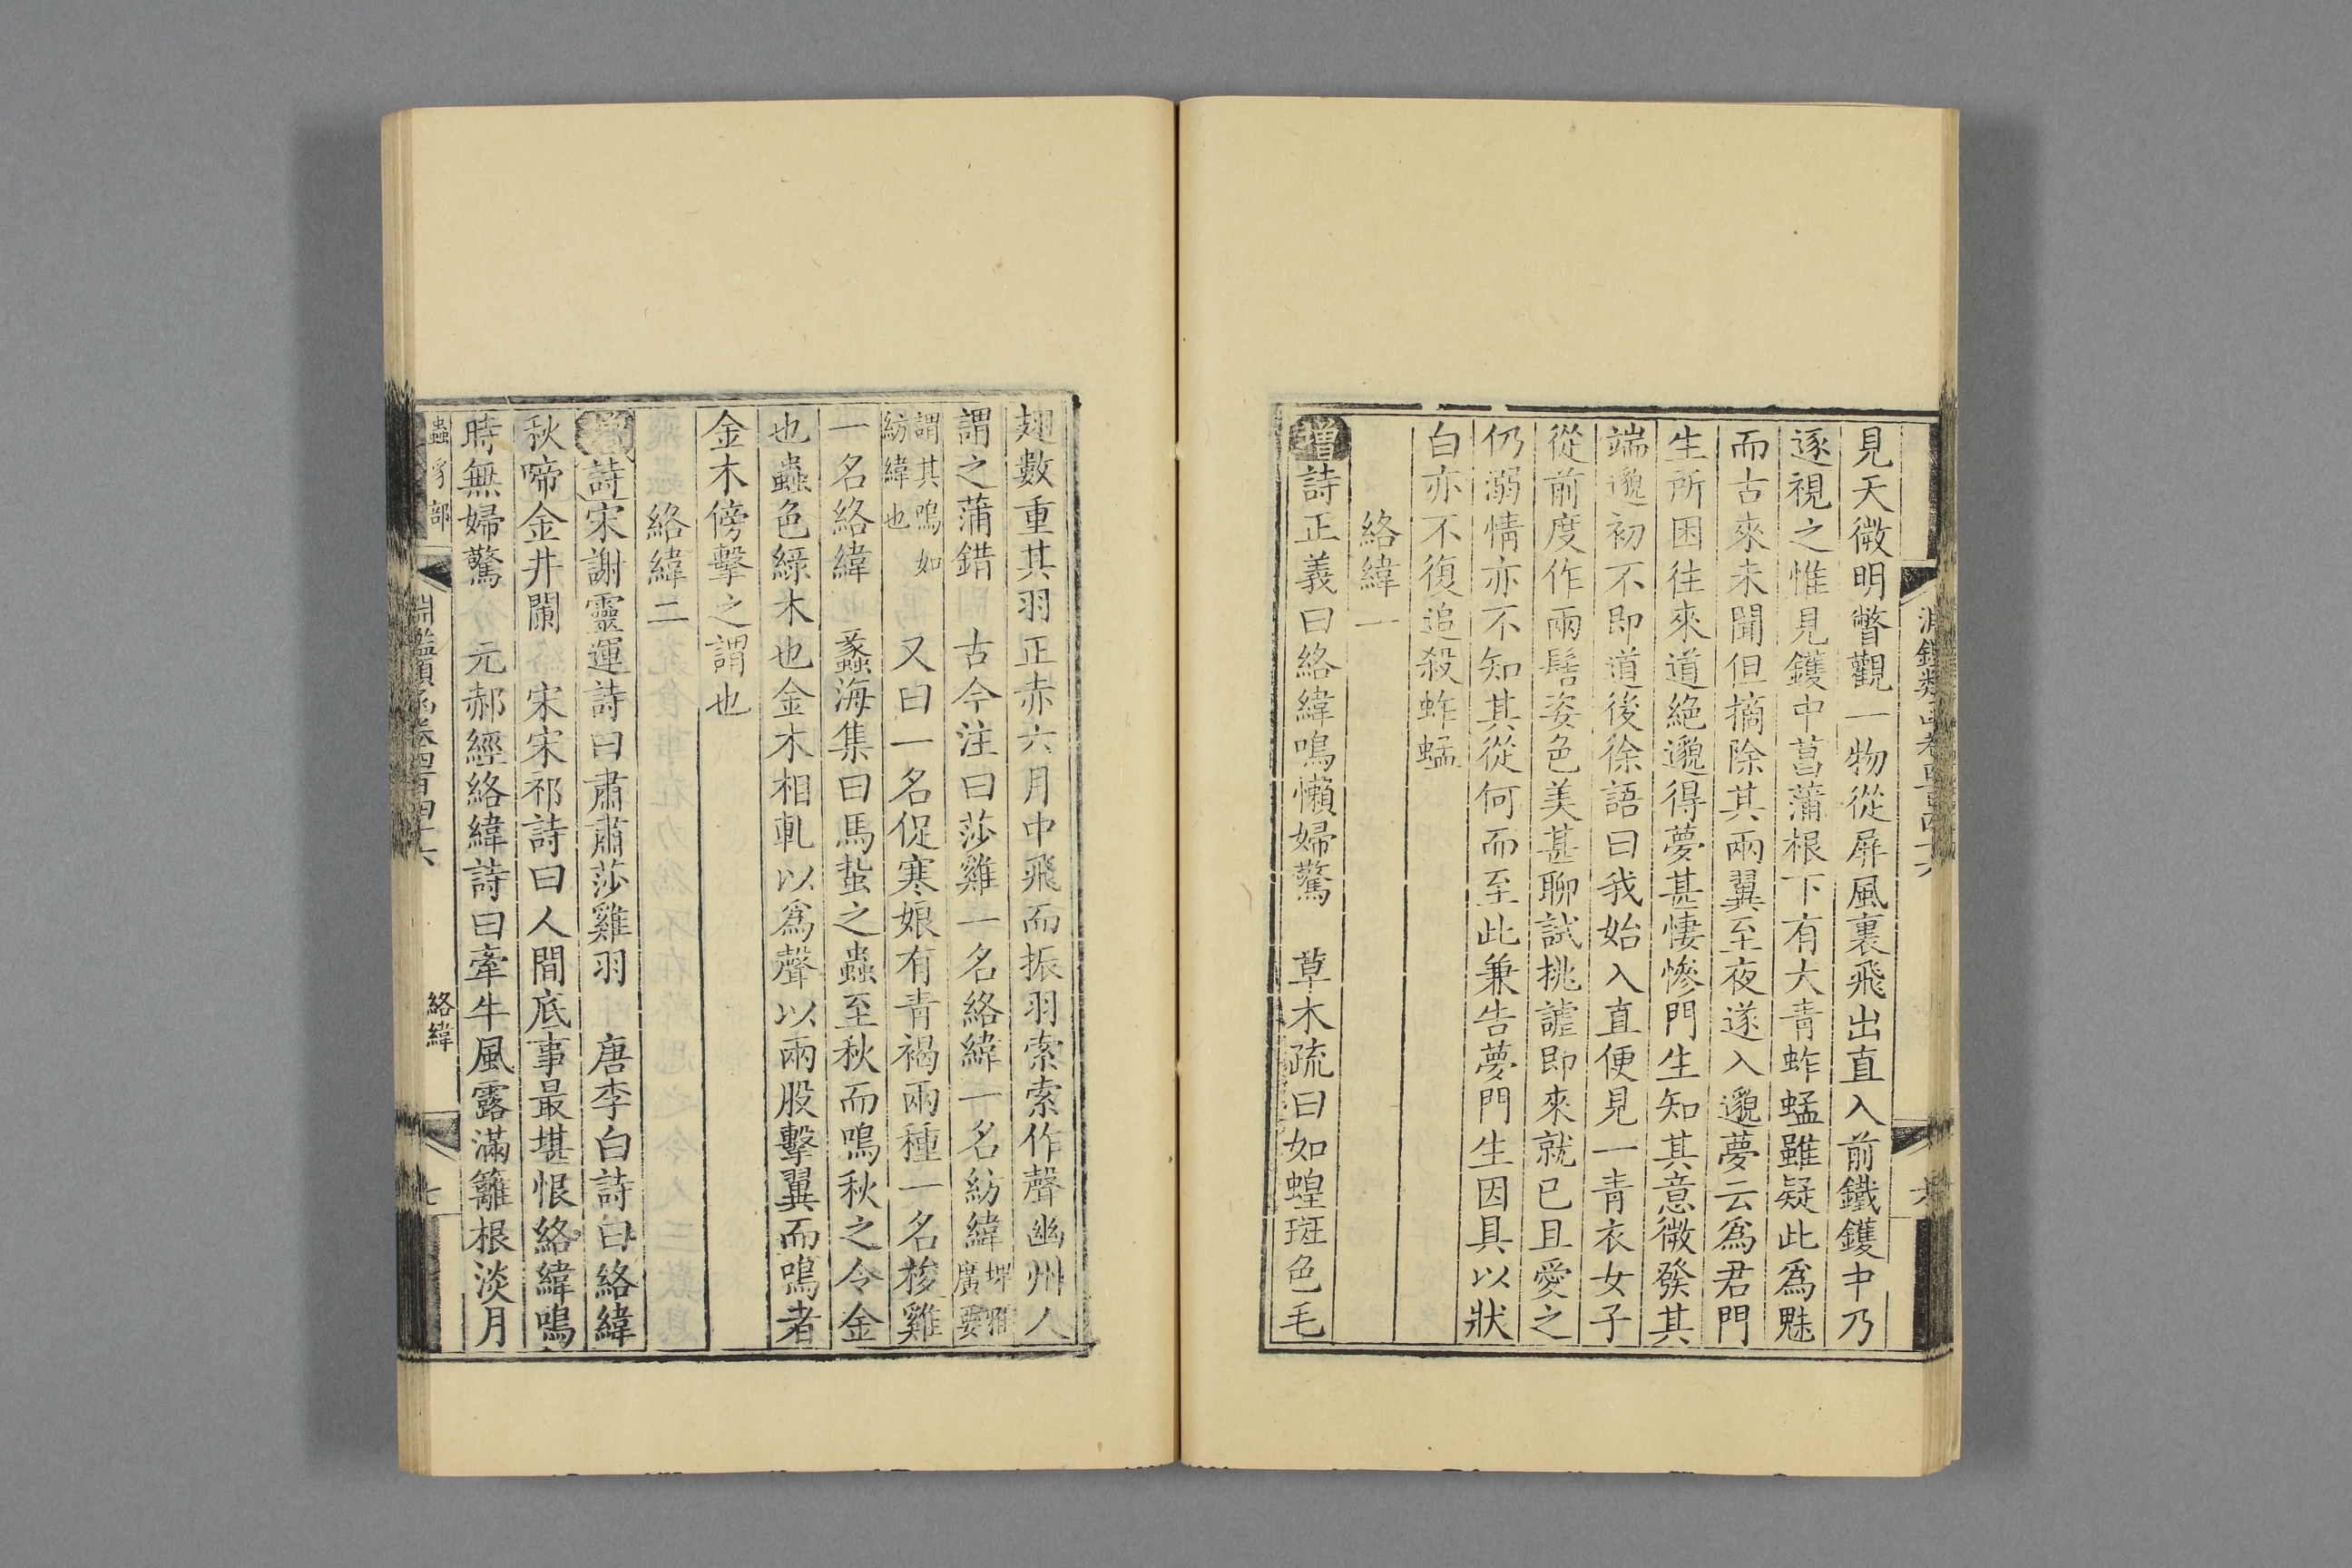 見天微明瞥觀一物從屏風裏飛出直入前鐵鑊中乃
逐視之惟見鑊中菖蒲根下有大青蚱蜢雖疑此爲魅
而古來未聞但摘除其兩翼至夜遂入邈夢云爲君門
生所困往來道絶邈得夢甚悽慘門生知其意微發其
端邈初不即道後徐語曰我始入直便見一青衣女子
從前度作兩髻姿色美甚聊試挑謔即來就已且愛之
仍溺情亦不知其從何而至此兼告夢門生因具以狀
白亦不復追殺蚱蜢
絡緯一
增詩正義曰絡緯鳴懶婦驚　草木疏曰如蝗斑色毛
翅數重其羽正赤六月中飛而振羽索索作聲幽州人
謂之蒲錯　古今注曰莎雞一名絡緯一名紡緯埤雅廣要
謂其鳴如紡緯也　又曰一名促寒娘有青褐兩種一名梭雞
一名絡緯　蠡海集曰馬蜇之蟲至秋而鳴秋之令金
也蟲色綠木也金木相軋以爲聲以兩股擊翼而鳴者
金木傍擊之謂也
絡緯二
增詩宋謝靈運詩曰肅肅莎雞羽　唐李白詩曰絡緯
秋啼金井闌　宋宋祁詩曰人間底事最堪恨絡緯鳴
時無婦驚　元郝經絡緯詩曰牽牛風露滿籬根淡月
蟲豸部　淵鑑類函卷四百四十六　絡緯　七